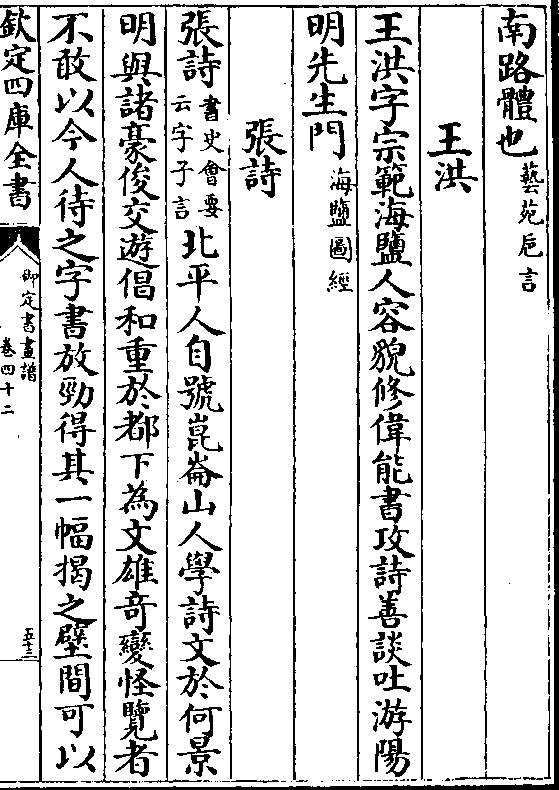 南路體也藝苑巵言
王洪
王洪字宗範海鹽人容貌修偉能書攻詩善談吐游陽
明先生門海鹽圖經
張詩
張詩書史會要云字子言北平人自號崑崙山人學詩文於何景
明與諸豪俊交遊倡和重於都下為文雄奇變怪覽者
不敢以今人待之字書放勁得其一幅揭之壁間可以
欽定四庫全書
御定書畫譜
卷四十二
五十三